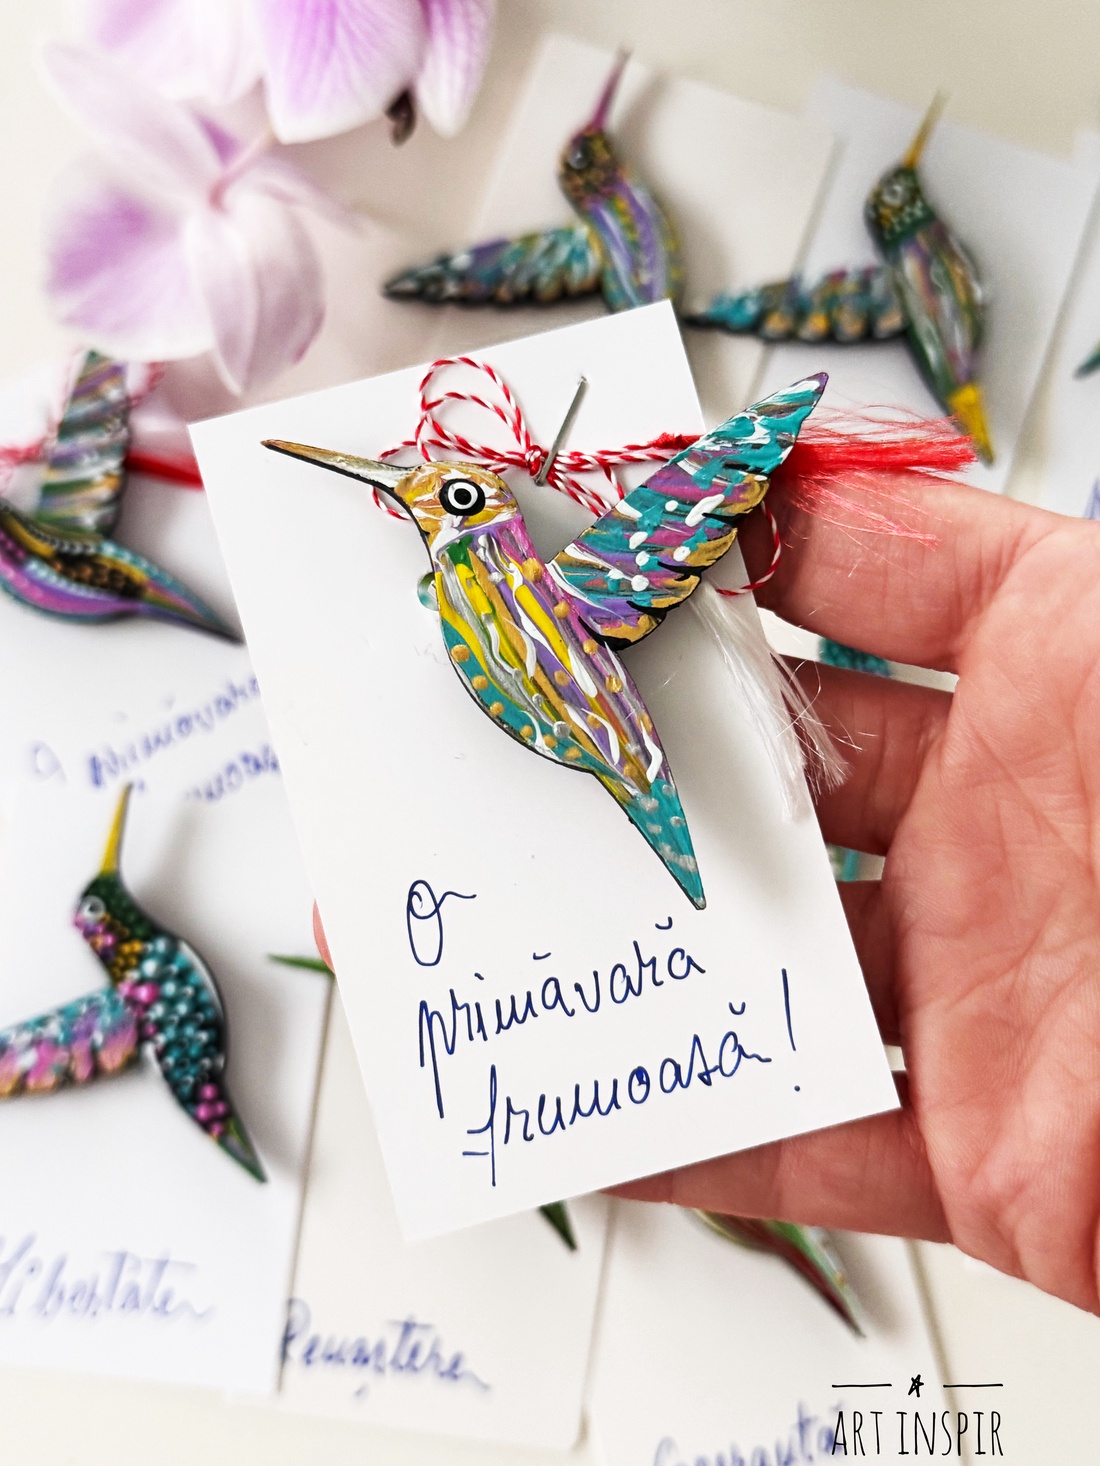 O
primăvară
frumoasă!
O primăvară
Libertate
Renaștere
ART INSPIR